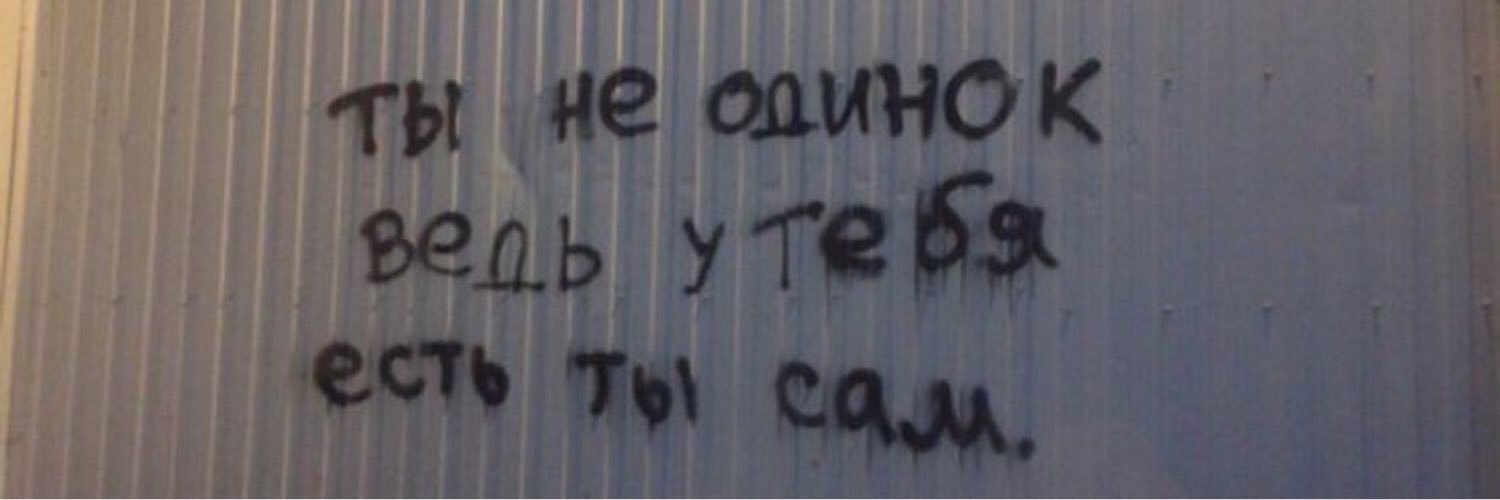 ты не одинок
ведь у тебя
есть ты сам.